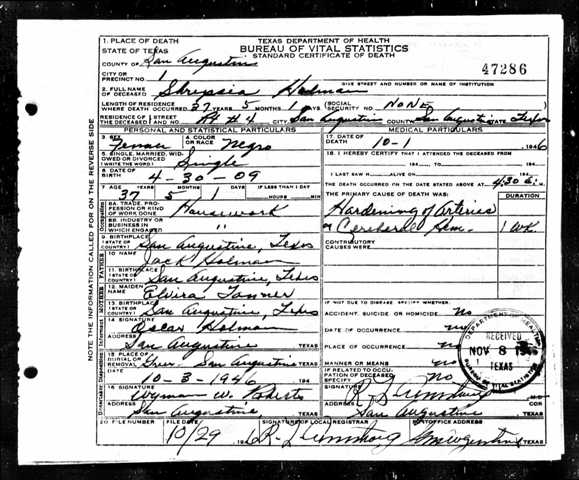 TEXAS DEPARTMENT OF HEALTH
BUREAU OF VITAL STATISTICS
STANDARD CERTIFICATE OF DEATH
47286
1. PLACE OF DEATH
STATE OF TEXAS
COUNTY OF San Augustine
CITY OR PRECINCT NO. 1
GIVE STREET AND NUMBER OR NAME OF INSTITUTION
2. FULL NAME OF DECEASED Holman
LENGTH OF RESIDENCE WHERE DEATH OCCURRED 37 YEARS 5 MONTHS 1 DAYS (SOCIAL SECURITY NO. NONE
RESIDENCE OF THE DECEASED STREET Rt #4 CITY San Augustine COUNTY San Augustine STATE Texas
PERSONAL AND STATISTICAL PARTICULARS
3. SEX Female 4. COLOR OR RACE Negro
5. SINGLE, MARRIED, WIDOWED OR DIVORCED (WRITE THE WORD) Single
6. DATE OF BIRTH 4-30-09
7. AGE YEARS MONTHS DAYS IF LESS THAN 1 DAY
37 5 1 HOURS MIN
8A. TRADE, PROFESSION OR KIND OF WORK DONE Housework
8B. INDUSTRY OR BUSINESS IN WHICH ENGAGED "
9. BIRTHPLACE (STATE OR COUNTY) San Augustine, Texas
10. NAME Jack Holman
11. BIRTHPLACE (STATE OR COUNTY) San Augustine, Texas
12. MAIDEN NAME Elvira Tanner
13. BIRTHPLACE (STATE OR COUNTY) San Augustine, Texas
14. SIGNATURE Oscar Holman
ADDRESS San Augustine TEXAS
15. PLACE OF BURIAL OR REMOVAL San Augustine TEXAS
10-3-1946
16. SIGNATURE Wyman W. Roberts
ADDRESS San Augustine, TEXAS
MEDICAL PARTICULARS
17. DATE OF DEATH 10-1 1946
18. I HEREBY CERTIFY THAT I ATTENDED THE DECEASED FROM
194 TO 194
I LAST SAW H ALIVE ON 194
THE DEATH OCCURRED ON THE DATE STATED ABOVE AT 4:30
THE PRIMARY CAUSE OF DEATH WAS: DURATION
Hardening of Arteries
Cerebral Hem. 1 WK.
CONTRIBUTORY CAUSES WERE:
IF NOT DUE TO DISEASE, SPECIFY WHETHER:
ACCIDENT, SUICIDE OR HOMICIDE No
DATE OF OCCURRENCE no
PLACE OF OCCURRENCE no
MANNER OR MEANS no
IF RELATED TO OCCUPATION OF DECEASED, SPECIFY No
SIGNATURE
ADDRESS San Augustine TEXAS
20. FILE NUMBER FILE DATE SIGNATURE OF LOCAL REGISTRAR POSTOFFICE ADDRESS
10/29 194 TEXAS
DEPARTMENT OF HEALTH
RECEIVED
NOV 8 1946
TEXAS
BUREAU OF VITAL STATISTICS
NOTE THE INFORMATION CALLED FOR ON THE REVERSE SIDE
Occupation
FATHER
MOTHER
Informant
Undertaker
Disposition